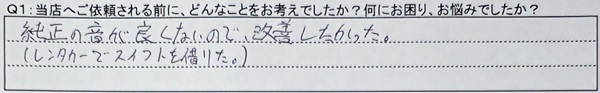 Q1：当店へご依頼される前に、どんなことをお考えでしたか？何にお困り、お悩みでしたか？
純正の音が良くないので、改善したかった。
（レンタカーでスイフトを借りた。）